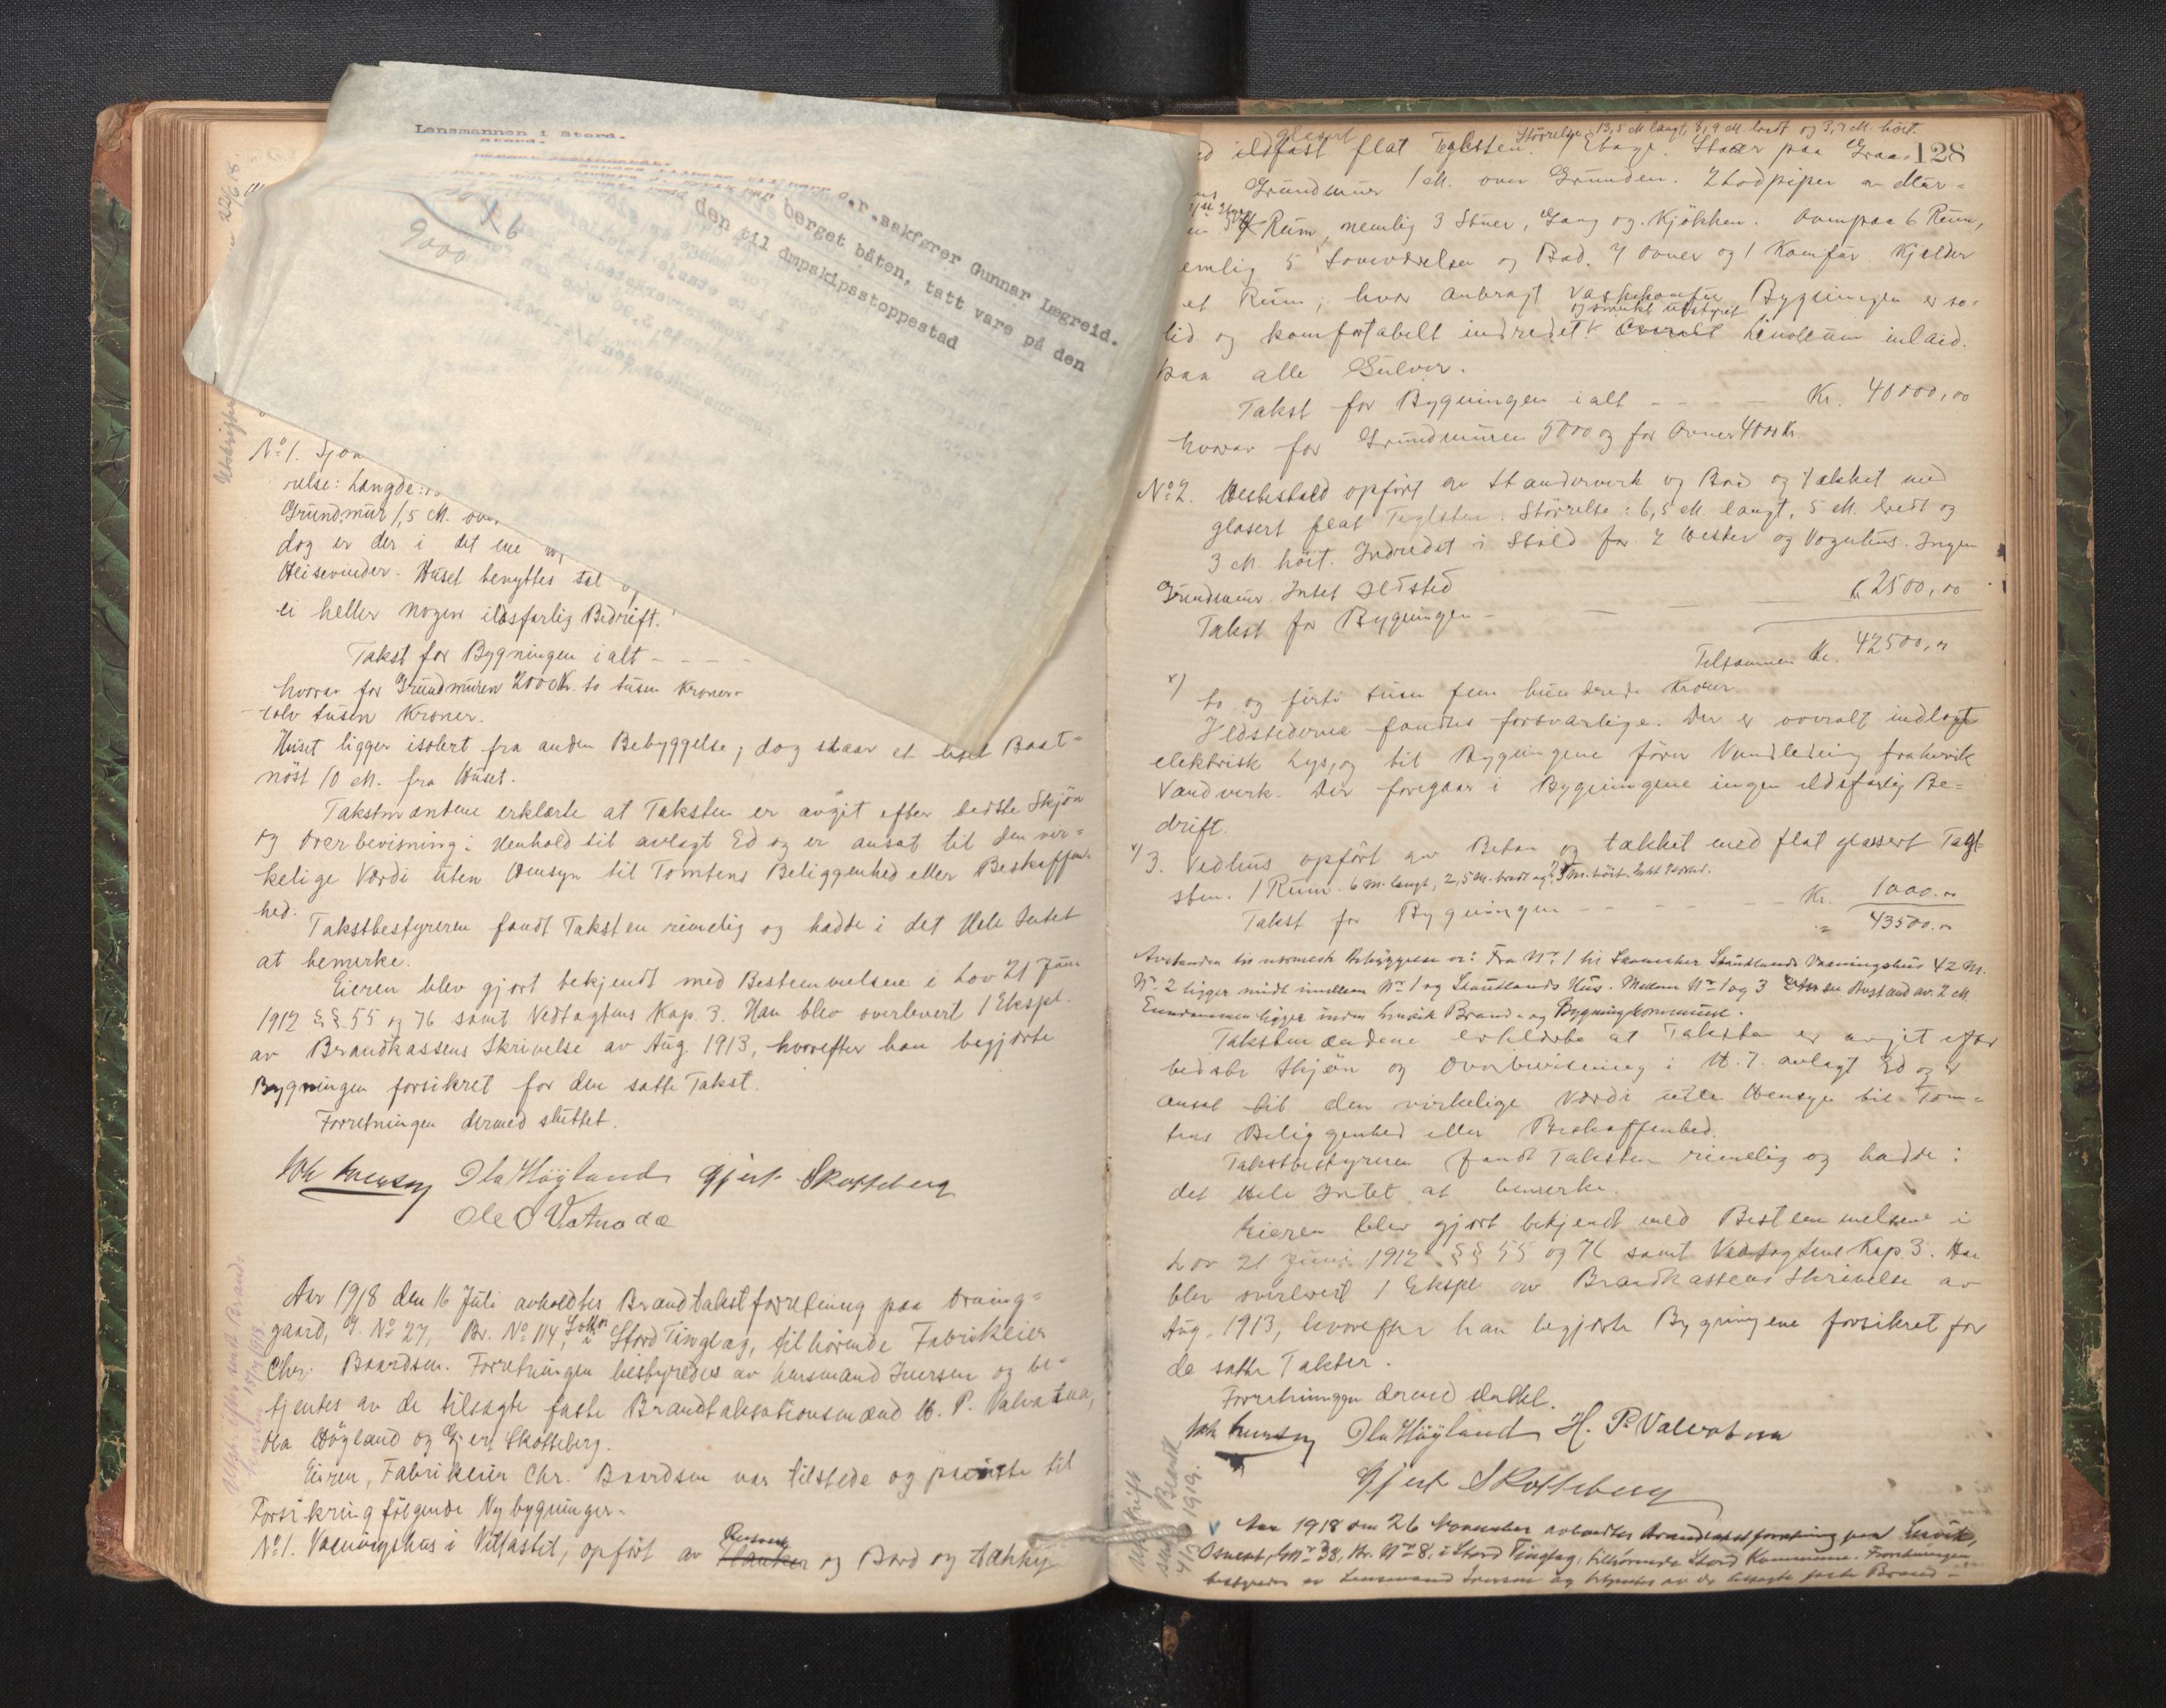 Lensmannen i Stord.
Stord.
o.r.sakfører Gunnar Lægreid.
berget båten, tatt vare på den
den til dmpskipsstoppestad
9000
No 1. Sjøh
relse: Længde:
Grundmur 1,5 M. over
dog er der i det ene
Heisevinder. Huset benyttes til
ei heller nogen ildsfarlig Bedrift.
Takst for Bygningen ialt - - - -
hvorav for Grundmuren 2000 Kr. to tusen Kroner
tolv tusen Kroner.
Huset ligger isolert fra anden Bebyggelse; dog staar et litet Baat-
nöst 10 M. fra Huset.
Takstmændene erklærte at Taksten er avgit efter bedste Skjön
og Overbevisning i Henhold til avlagt Ed og er ansat til den vir-
kelige Værdi uten Hensyn til Tomtens Beliggenhed eller Beskaffen-
hed.
Takstbestyreren fandt Taksten rimelig og hadde i det Hele Intet
at bemerke.
Eieren blev gjort bekjendt med Bestemmelsene i Lov 21 Juni
1912 §§ 55 og 76 samt Vedtagtens Kap. 3. Han blev overlevert 1 Ekspl.
av Brandkassens Skrivelse av Aug. 1913, hvorefter han begjærte
Bygningen forsikret for den satte Takst.
Forretningen dermed sluttet.
Joh Iversen Ola Höyland Gjert Skotteberg
Ole O Vatnada
Aar 1918 den 16 Juli avholdtes Brandtakstforretning paa
gaard, G. No 27, Br. No 114, i Stord Tinglag, tilhörende Fabrikeier
Chr. Baardsen. Forretningen bestyredes av Lensmand Iversen og be-
tjentes av de tilsagte faste Brandtakstionsmænd H. P. Valvatna,
Ola Höyland og Gjert Skotteberg.
Eieren, Fabrikeier Chr. Baardsen var tilstede og paaviste til
Forsikring fölgende Nybygninger.
No 1. Vaaningshus i Villastil, opfört av Planker og Bord og tækket
128
glasert
Störrelse: 13,5 M. langt, 8,9 M. bredt og 3,7 M. höit.
ildfast flat Teglsten. 1 Etage. Staar paa Graa-
Grundmur 1 M. over Grunden. 2 Lodpiper av Mur-
Rum, nemlig 3 Stuer, Gang og Kjökken. Ovenpaa 6 Rum,
nemlig 5 Soveværelser og Bad. 7 Ovner og 1 Komfur. Kjelder
et Rum, hvor anbragt Vaskekomfur. Bygningen er so-
og smukt utstyret
lid og komfortabelt indredet. Overalt Linoleum inlaid.
paa alle Gulver.
Takst for Bygningen ialt - - - - Kr. 40000,00
hvorav for Grundmuren 5000 og for Ovner 4000 Kr.
No 2. Hestestald opfört av Standerverk og Bord og tækket med
glasert flat Teglsten. Störrelse: 6,5 M. langt, 5 M. bredt og
3 M. höit. Indredet i Stald for 2 Hester og Vognhus. Ingen
Grundmur. Intet Ildsted
Takst for Bygningen - - - 2500,00
Tilsammen Kr. 42500,00
to og firti tusen fem hundrede Kroner.
Ildstederne fandtes forsvarlige. Der er overalt indlagt
elektrisk Lys, og til Bygningene förer Vandledning fra Lervik
Vandverk. Der foregaar i Bygningene ingen ildsfarlig Be-
drift.
3. Vedhus opfört av Beton og tækket med flat glassert Tegl
sten. 1 Rum. 6 M. langt, 2,5 M. bredt og
Takst for Bygningen - - - - Kr. 1000.00
" 43500.00
Avstanden til nærmeste Bebyggelse er: Fra No 1 til Skomaker Stautlands Vaaningshus 42 M.
No 2 ligger midt imellem No 1 og Stautlands Hus. Mellem No 1 og 3 er en Avstand av 2 M.
Eiendommen ligger inden Lervik Brand- og Bygningskommune.
Takstmændene erklærte at Taksten er avgit efter
bedste Skjön og Overbevisning i H. T. avlagt Ed og er
ansat til den virkelige Værdi uten Hensyn til Tom-
tens Beliggenhed eller Beskaffenhed.
Takstbestyreren fandt Taksten rimelig og hadde i
det Hele Intet at bemerke.
Eieren blev gjort bekjendt med Bestemmelsene i
Lov 21 Juni 1912 §§ 55 og 76 samt Vedtagtene Kap 3. Han
blev overlevert 1 Ekspl av Brandkassens Skrivelse av
Aug. 1913, hvorefter han begjærte Bygningene forsikret for
de satte Takster.
Forretningen dermed sluttet.
Joh Iversen Ola Höyland H. P. Valvatna
Gjert Skotteberg
Utskrift
sendt Brandk
1919.
Aar 1918 den 26 November avholdtes Brandtakstforretning paa Lervik,
G. No 38, Br. No 8, i Stord Tinglag, tilhörende Stord Kommune. Forretningen
bestyredes av Lensmand Iversen og betjentes av de tilsagte faste Brand-